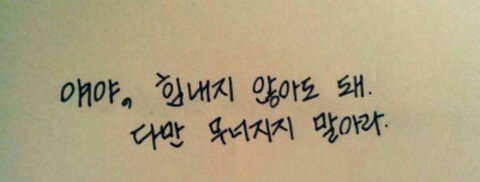 얘야, 힘내지 않아도 돼.
다만 무너지지 말아라.